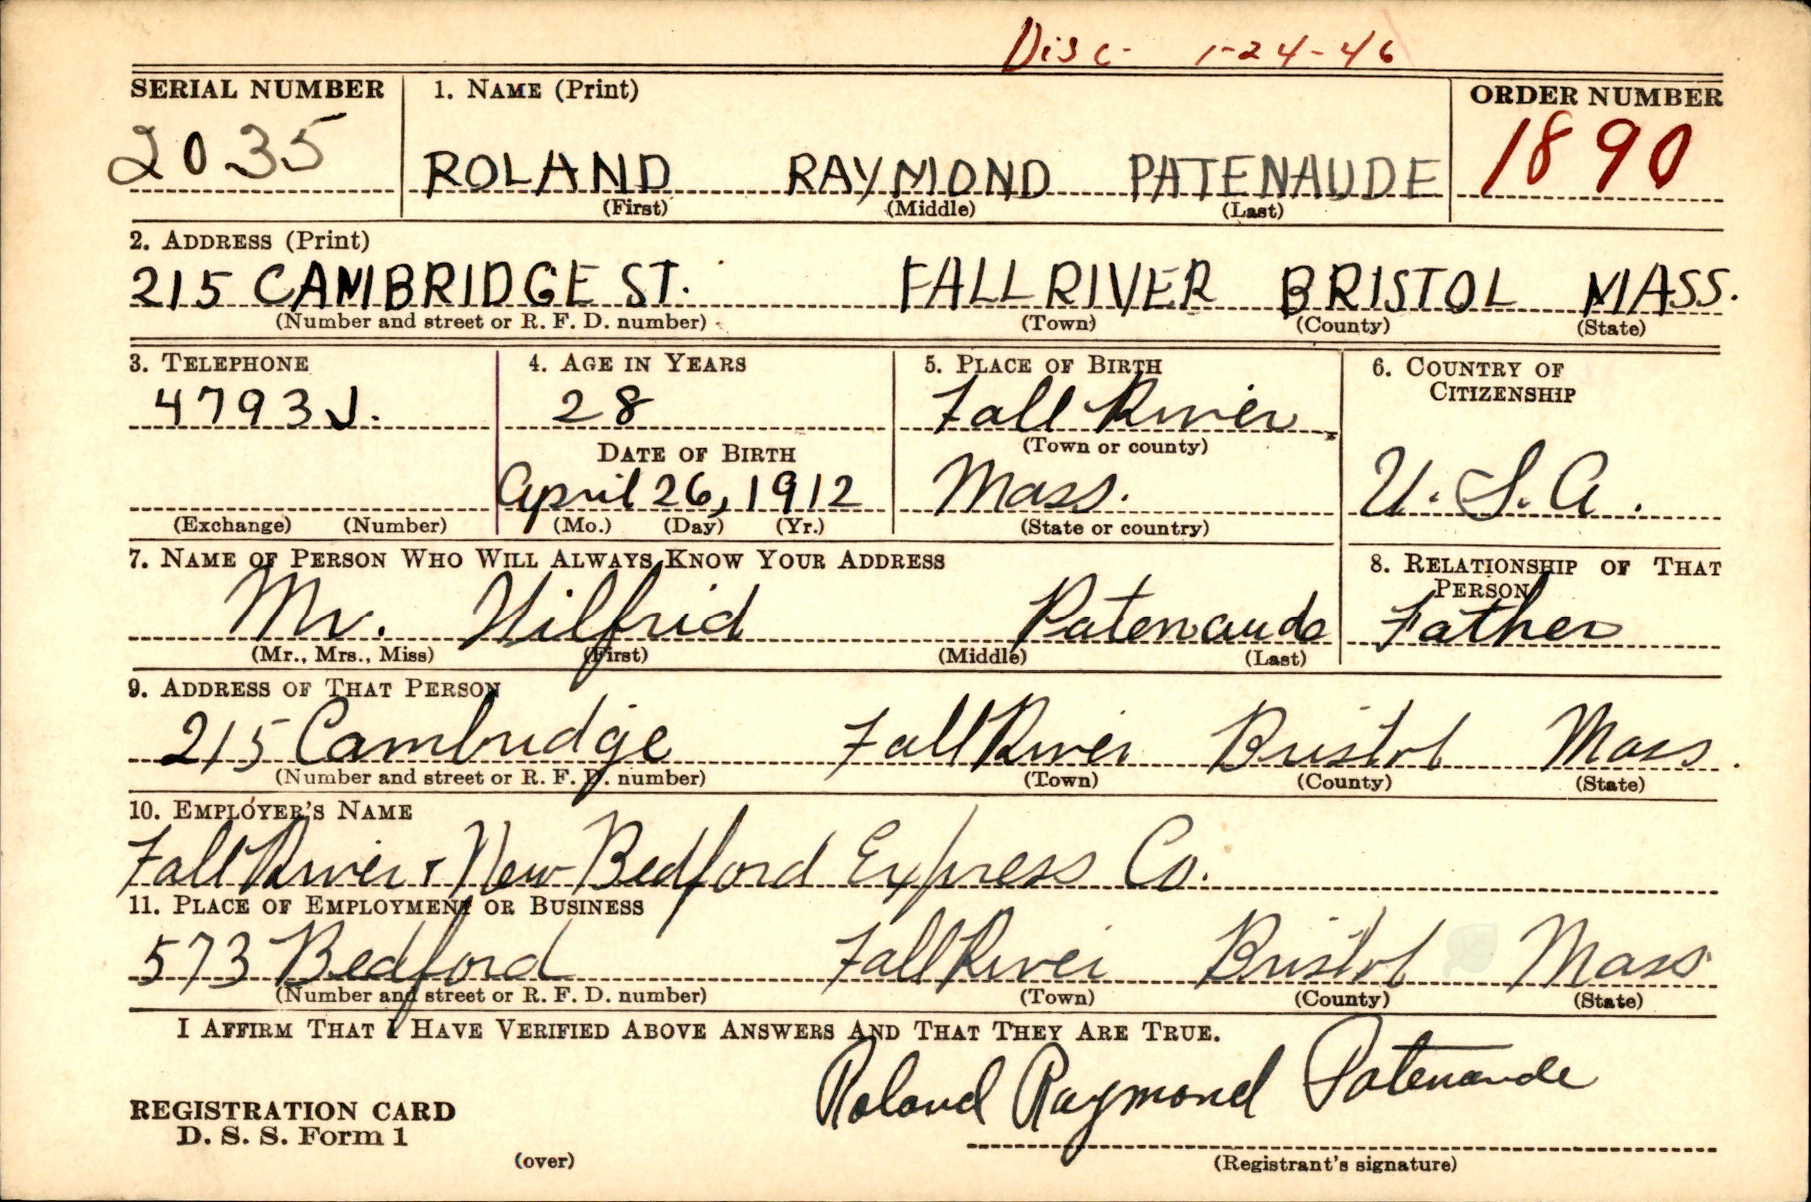 Disc- 1-24-46
SERIAL NUMBER 1. NAME (Print) ORDER NUMBER
2035 ROLAND RAYMOND PATENAUDE 1890
(First) (Middle) (Last)
2. ADDRESS (Print)
215 CAMBRIDGE ST. FALL RIVER BRISTOL MASS.
(Number and street or R. F. D. number) (Town) (County) (State)
3. TELEPHONE 4. AGE IN YEARS 5. PLACE OF BIRTH 6. COUNTRY OF
CITIZENSHIP
4793J. 28 Fall River
DATE OF BIRTH (Town or county)
April 26, 1912 Mass. U.S.A.
(Exchange) (Number) (Mo.) (Day) (Yr.) (State or country)
7. NAME OF PERSON WHO WILL ALWAYS KNOW YOUR ADDRESS 8. RELATIONSHIP OF THAT
PERSON
Mr. Wilfrid Patenaude Father
(Mr., Mrs., Miss) (First) (Middle) (Last)
9. ADDRESS OF THAT PERSON
215 Cambridge Fall River Bristol Mass.
(Number and street or R. F. D. number) (Town) (County) (State)
10. EMPLOYER'S NAME
Fall River & New Bedford Express Co.
11. PLACE OF EMPLOYMENT OR BUSINESS
573 Bedford Fall River Bristol Mass
(Number and street or R. F. D. number) (Town) (County) (State)
I AFFIRM THAT I HAVE VERIFIED ABOVE ANSWERS AND THAT THEY ARE TRUE.
Roland Raymond Patenaude
REGISTRATION CARD
D. S. S. Form 1
(over) (Registrant's signature)